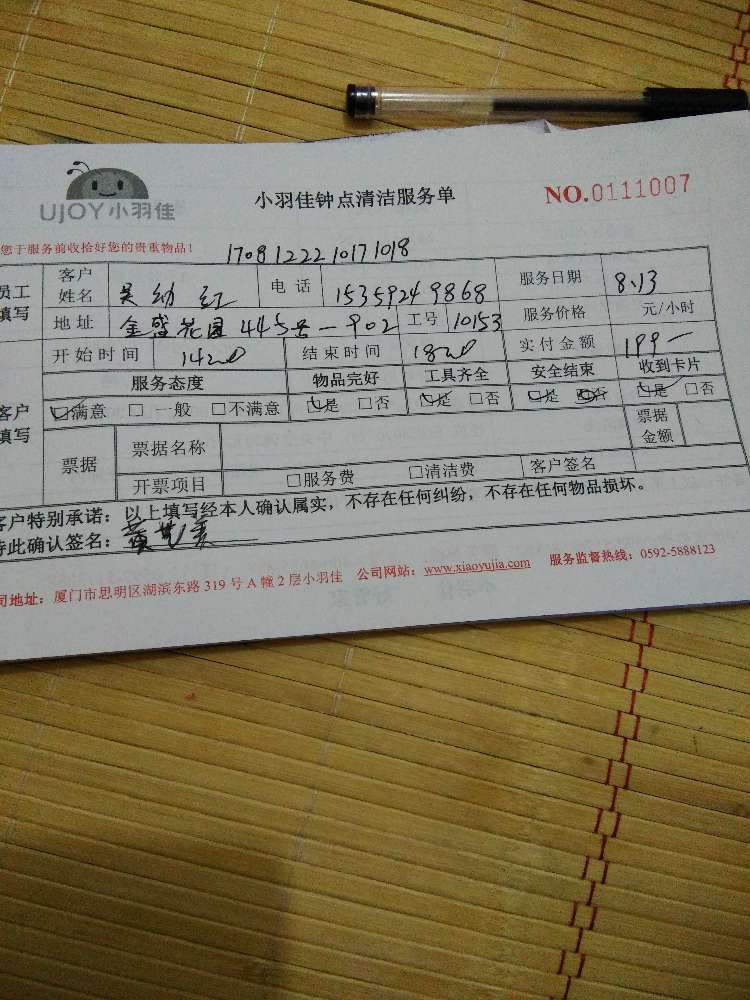 UJOY小羽佳
小羽佳钟点清洁服务单
NO.0111007
您于服务前收拾好您的贵重物品！
170812221017 1018
员工填写
客户姓名 吴幼红 电话 15359249868 服务日期 8.13
地址 金盛花园445号-902 工号 10153 服务价格 元/小时
开始时间 1420 结束时间 1820 实付金额 199-
客户填写
服务态度 物品完好 工具齐全 安全结束 收到卡片
☑满意 □一般 □不满意 ☑是 □否 ☑是 □否 ☑是 ☑否 ☑是 □否
票据 票据名称 票据金额
开票项目 □服务费 □清洁费 客户签名
客户特别承诺：以上填写经本人确认属实，不存在任何纠纷，不存在任何物品损坏。
特此确认签名：黄
司地址：厦门市思明区湖滨东路319号A幢2层小羽佳 公司网站：www.xiaoyujia.com 服务监督热线：0592-5888123